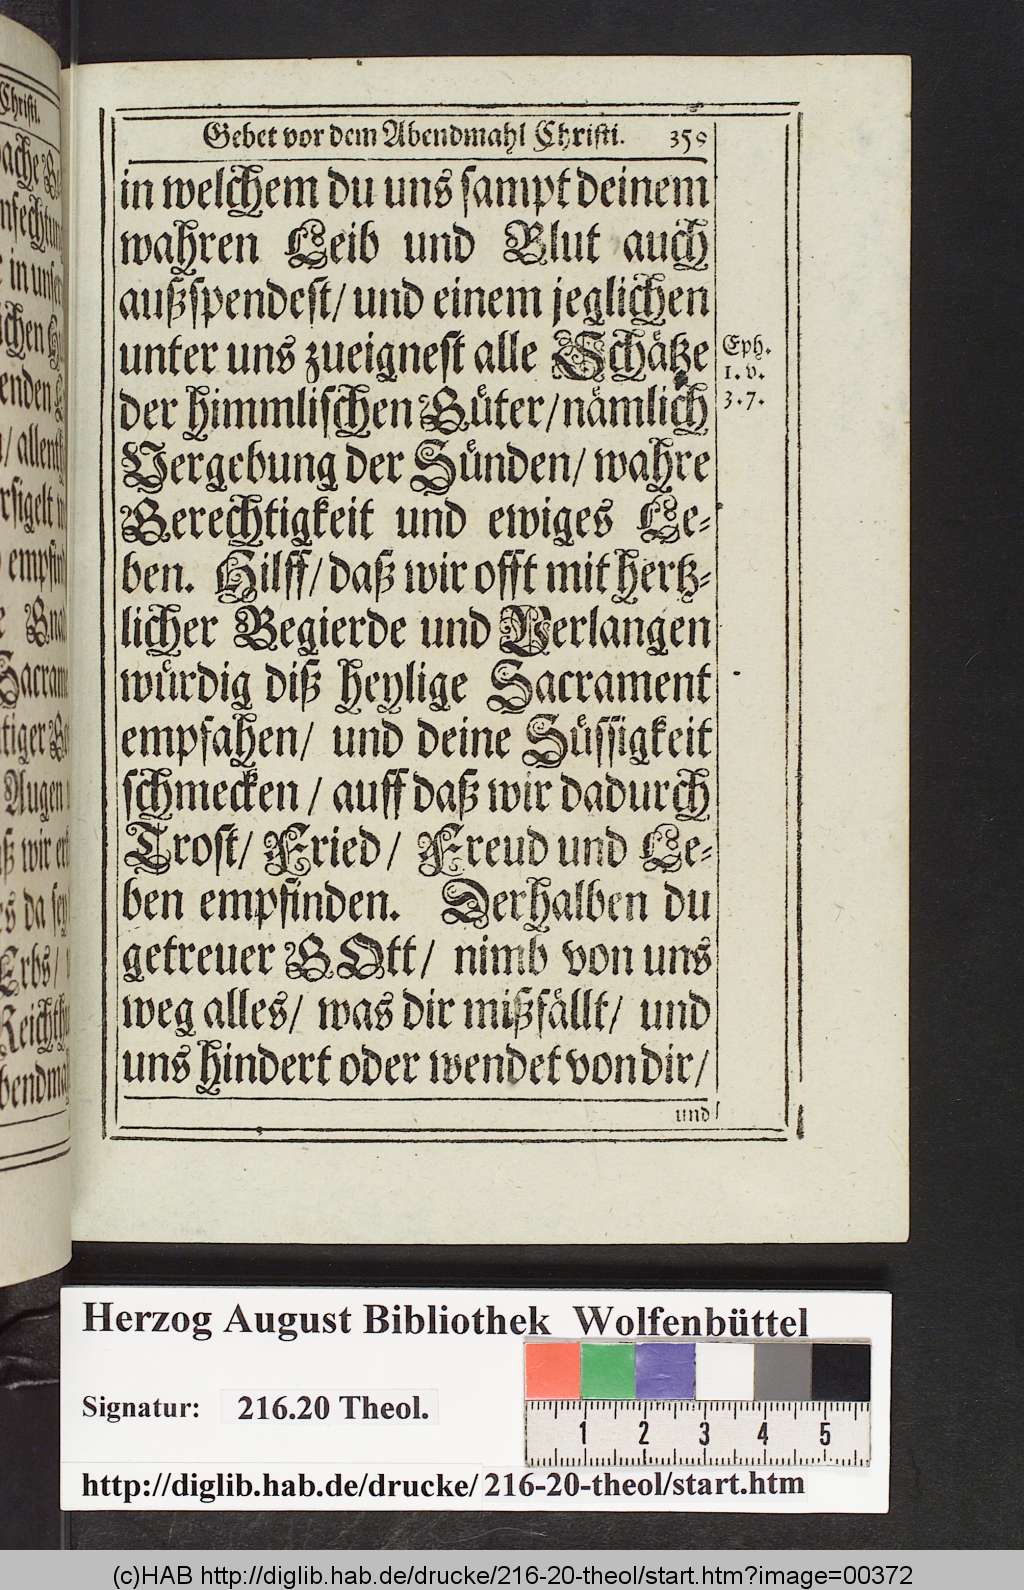 Gebet vor dem Abendmahl Christi.
in welchem du uns sampt deinem
wahren Leib und Blut auch
außspendest/ und einem jeglichen
unter uns zueignest alle Schätze
der himmlischen Güter/ nämlich
Vergebung der Sünden/ wahre
Gerechtigkeit und ewiges Le-
ben. Hilff/ daß wir offt mit hertz-
licher Begierde und Verlangen
würdig diß heylige Sacrament
empfahen/ und deine Süssigkeit
schmecken/ auff daß wir dadurch
Trost/ Fried/ Freud und Le-
ben empfinden. Derhalben du
getreuer GOtt/ nimb von uns
weg alles/ was dir mißfällt/ und
uns hindert oder wendet von dir/
und
Eph.
1. v.
3. 7.
Christi.
in unser
enden
empfind
Augen
wir
Erbs/
Herzog August Bibliothek Wolfenbüttel
Signatur: 216.20 Theol.
1 2 3 4 5
http://diglib.hab.de/drucke/216-20-theol/start.htm
(c)HAB http://diglib.hab.de/drucke/216-20-theol/start.htm?image=00372